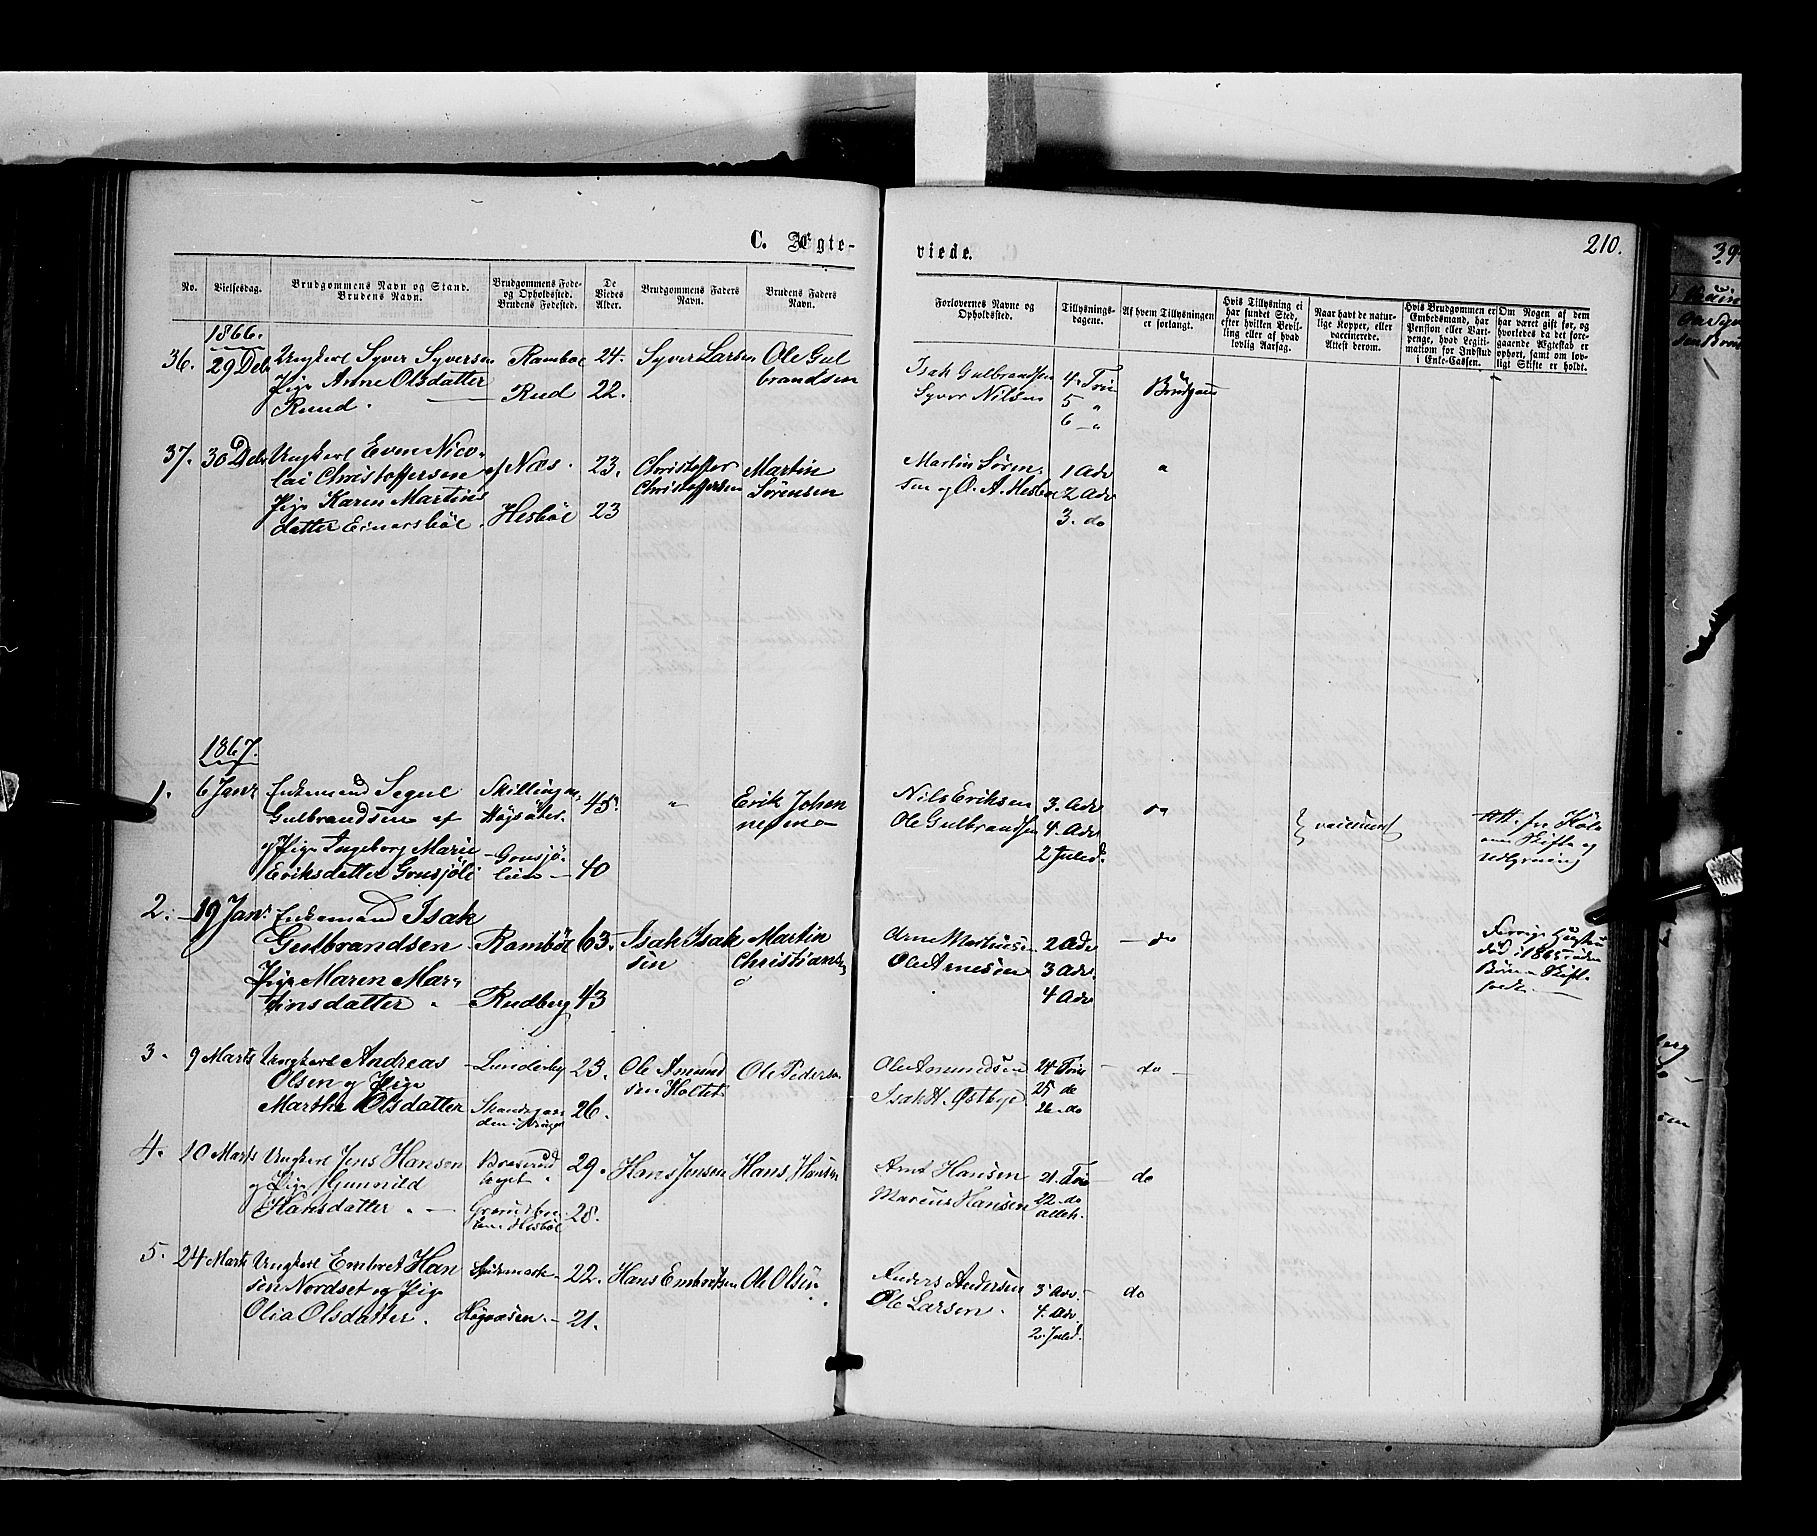 C. Ægte-
viede.
210.
No.
Vielsesdag.
Brudgommens Navn og Stand.
Brudens Navn.
Brudgommens Føde-
og Opholdssted.
Brudens Fødested.
De
Viedes
Alder.
Brudgommens Faders
Navn.
Brudens Faders
Navn.
Forlovernes Navne og
Opholdssted.
Tillysnings-
dagene.
Af hvem Tillysningen
er forlangt.
Hvis Tillysning ei
har fundet Sted,
efter hvilken Bevil-
ling eller af hvad
lovlig Aarsag.
Naar havt de natur-
lige Kopper, eller
vaccinerede.
Attest derom.
Hvis Brudgommen er
Embedsmand, har
Pension eller Vart-
penge, hvad Legiti-
mation for Indskud
i Enke-Cassen.
Om Nogen af dem
har været gift før, og
hvorledes da det fore-
gaaende Ægtestad er
ophørt, samt om lov-
ligt Skifte er holdt.
1866.
36. 29 Debr Ungkarl Syver Syversen Rambøl 24. Syver Larsen Ole Gul
Pige Anne Olsdatter Rud 22. brandsen
Ruud.
Isak Gulbrandsen 4. Trin
Syver Nilsen 5 "
6 — "
37. 30 Debr Ungkarl Even Nico-
lai Christoffersen af Næs. 23. Christoffer Martin
Christoffersen Sørensen
Pige Karen Martins
datter Einarsbøl. Hesbøl 23
Martin Søren- 1 Adv "
sen og O. A. Hesbøl 2 Adv
3. do
1867.
1. 6 Janr Enkemand Segul 45. " Erik Johan
Gulbrandsen af Høgsäter.
og Pige Ingeborg Marie
Eriksdatter 40
Nils Eriksen 3. Adv do
Ole Gulbrandsen 4. Adv
2 Juled.
Att. fra
om Skifte og
2. 19 Janr Enkemand Isak
Gulbrandsen Rambøl 63. Isak Isak Martin
sen Christians
Pige Maren Mar-
tinsdatter Rudberg 43
Arne Martinsen 2 Adv — do
Ole Arnesen 3 Adv.
4 Adv
død i 1865
3. 9 Marts Ungkarl Andreas Lunderby 23. Ole Amund Ole Peders
Olsen og Pige sen Holtet
Marthe Olsdatter 26.
Ole Amundsen 24 Trin — do —
Isak H. Østbye 25 do
26. do
4. 10 Marts Ungkarl Jens Hansen 29. Hans Jensen Hans Hansen
og Pige Gunnild
Hansdatter. 28.
Arnt Hansen 21. Trin do
Marcus Hansen 22. do
5. 24 Marts Ungkarl Embret Han 22. Hans Embretsen Ole Olsen
sen Nordset og Pige
Olia Olsdatter. Høgaasen. 21.
Anders Andersen 3 Adv. — do
Ole Larsen. 4. Adv
2. Juled.